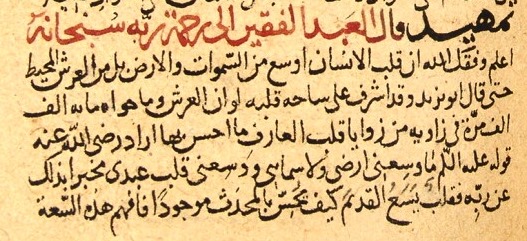 تمهيد قال العبد الفقير الى رحمة ربه سبحانه
اعلم وفقك الله ان قلب الانسان اوسع من السموات والارض بل من العرش المحيط
حتى قال ابو يزيد وقد اشرف على ساحه قلبه لو ان العرش وما هواه مايه الف
الف مرة فى زاويه من زوايا قلب العارف ما احس بها اراد رضى الله عنه
قوله عليه السلم ما وسعنى ارضى ولا سماسى ووسعنى قلب عبدى مخبرا بذلك
عن ربه فقلب يسع القديم كيف يحس بالمحدث موجودا فافهم هذه السعة